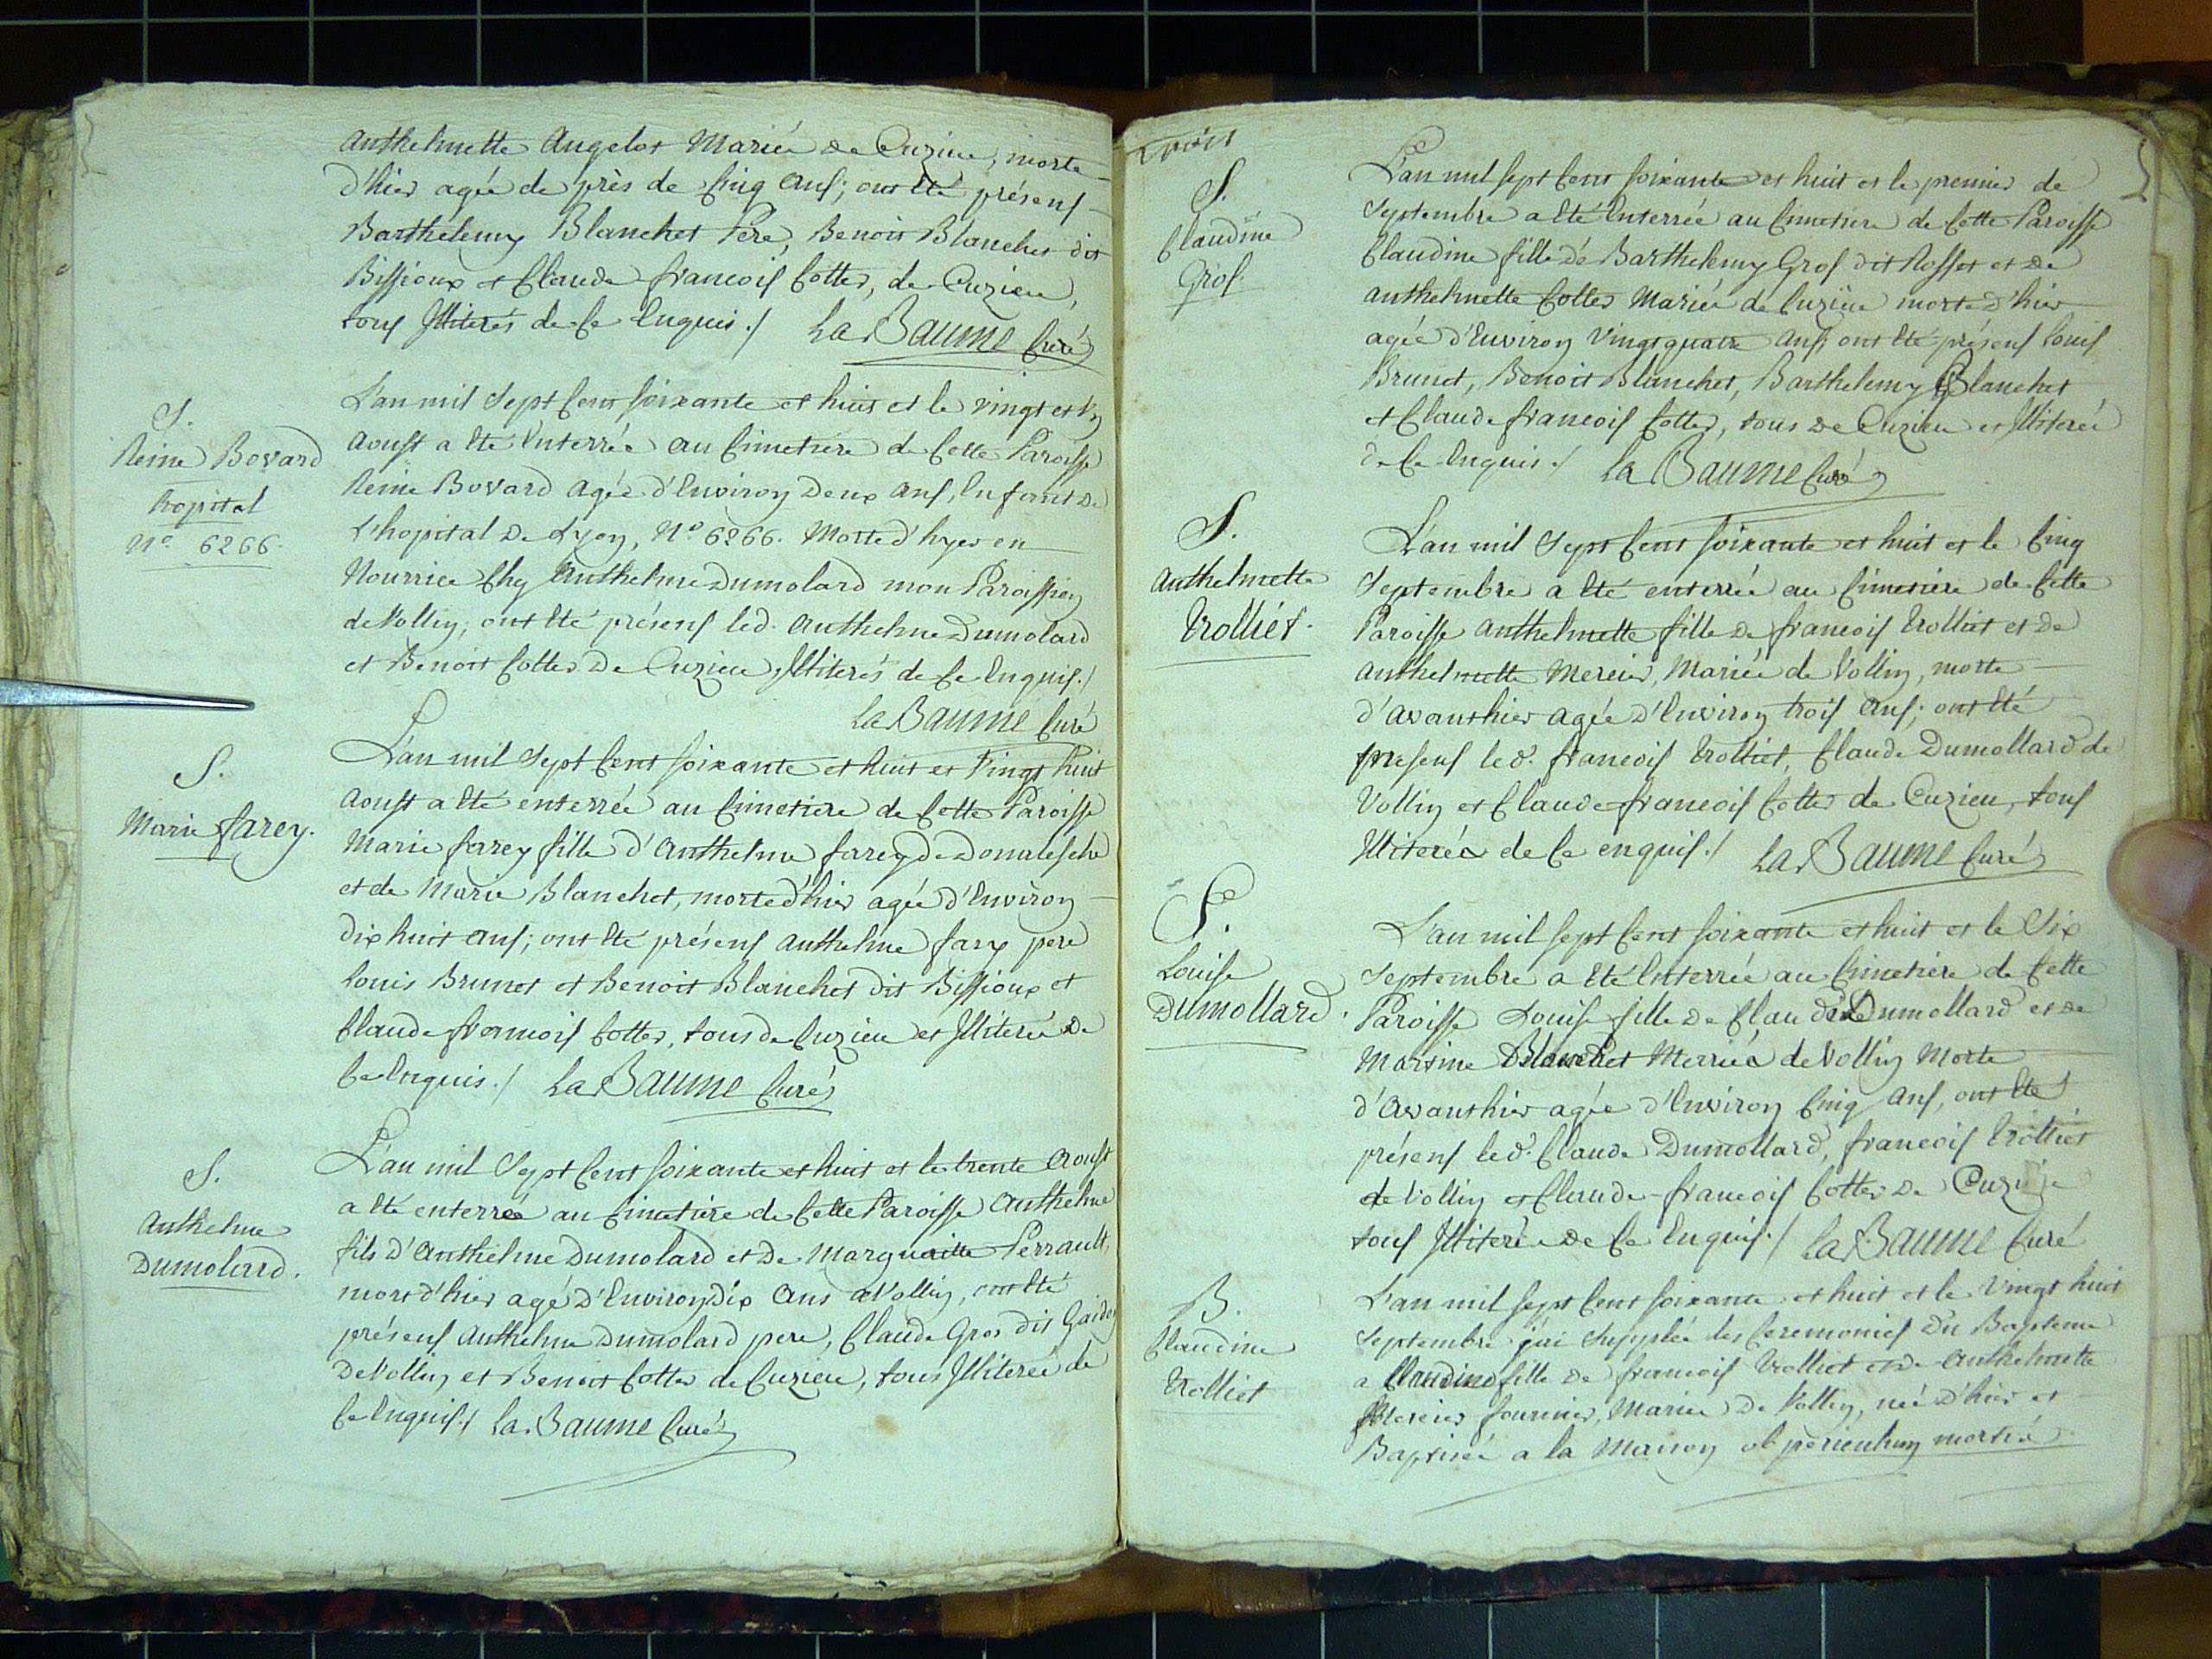 anthelmette Angelot Mariée de Cuzieu, morte
d'hier agée de près de cinq ans; ont été présens
Barthelemy Blanchet Père, Benoit Blanchet dit
Bissioux et Claude francois Cottes, de Cuzieu,
tous Illiterés de ce Enquis./ La Baume Curé
S.
Reine Bovard
hopital
N° 6266.
L'an mil sept cent soixante et huit et le vingt et un
Aoust a été Enterrée au Cimetiere de cette Paroisse
Reine Bovard agée d'Environ deux ans, Enfant de
L'hopital de Lyon, N° 6266. Morte d'hyer en
Nourrice chez Anthelme Dumolard mon Paroissien
de Vollin, ont été présens led. Anthelme Dumolard
et Benoit Cottes de Cuzieu Illiterés de ce Enquis./
La Baume Curé
S.
Marie farey.
L'an mil sept cent soixante et huit et vingt huit
Aoust a été enterrée au Cimetiere de cette Paroisse
Marie farey fille d'Anthelme farey de
et de Marie Blanchet, morte d'hier agée d'Environ
dix huit ans; ont été présens anthelme farey pere
Louis Brunet et Benoit Blanchet dit Bissioux et
Claude francois Cottes, tous de Cuzieu et Illiteré de
ce Enquis./ La Baume Curé
S.
Anthelme
Dumolard.
L'an mil sept cent soixante et huit et le trente Aoust
a été enterreé au Cimetiere de cette Paroisse Anthelme
fils d'Anthelme Dumolard et de Marguaitte Perrault,
mort d'hier agé d'Environ dix ans a Vollin, ont été
présens Anthelme Dumolard pere, Claude Gros dit
de Vollin et Benoit Cottes de Cuzieu, tous Illiteré de
ce Enquis./ La Baume Curé
S.
Claudine
Gros.
L'an mil sept cent soixante et huit et le premier de
Septembre a été Enterrée au Cimetiere de cette Paroisse
Claudine fille de Barthelemy Gros dit Rosset et de
anthelmette Cottes Mariée de Cuzieu morte d'hier
agée d'Environ vingt quatre ans, ont été présens Louis
Brunet, Benoit Blanchet, Barthelemy Blanchet
et Claude francois Cottes, tous de Cuzieu et Illiteré
de ce Enquis./ La Baume Curé
S.
Anthelmette
Trolliet.
L'an mil sept cent soixante et huit et le cinq
Septembre a été enterrée au Cimetiere de cette
Paroisse Anthelmette fille de francois Trolliet et de
anthelmette Mercier, Mariée de Vollin, morte
d'avanthier agée d'Environ trois ans; ont été
presens led. francois Trolliet, Claude Dumollard de
Vollin et Claude francois Cottes de Cuzieu, tous
Illiterés de ce enquis./ La Baume Curé
S.
Louise
Dumollard.
L'an mil sept cent soixante et huit et le Six
Septembre a été Enterrée au Cimetiere de cette
Paroisse Louise fille de Claude Dumollard et de
Martine Blanchet Merriéé de Vollin Morte
d'Avanthier agée d'Environ cinq ans, ont été
présens led. Claude Dumollard, francois Trolliet
de Vollin et Claude francois Cottes de Cuzieu
tous Illiteré de ce Enquis./ La Baume Curé
B.
Claudine
Trolliet
L'an mil sept cent soixante et huit et le vingt huit
Septembre j'ai Suppléé les ceremonies du Bapteme
a Claudine fille de francois Trolliet et de Anthelmette
Mercier fournier, Mariée de Vollin, née d'hier et
Baptisée a la Maison ob periculum mortis.